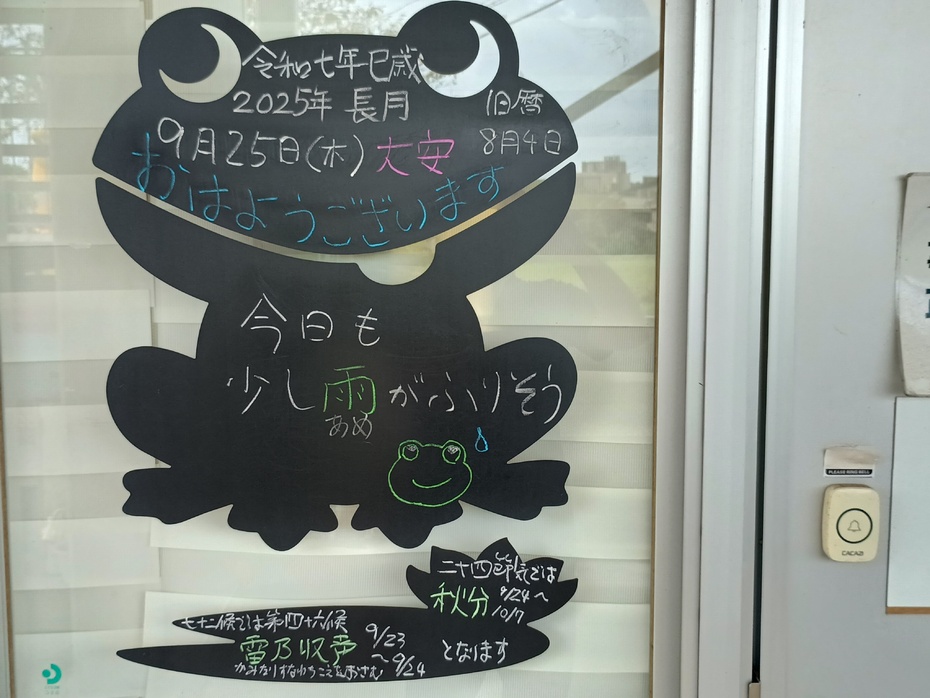 令和七年巳歳
2025年 長月
旧暦
8月4日
9月25日(木)大安
おはようございます
今日も
少し雨がふりそう
あめ
二十四節気では
秋分 9/24〜
10/7
七十二候では第四十六候
雷乃収声 9/23
〜9/24
かみなりすなわちこえをおさむ
となります
PLEASE RING BELL
CACAZI